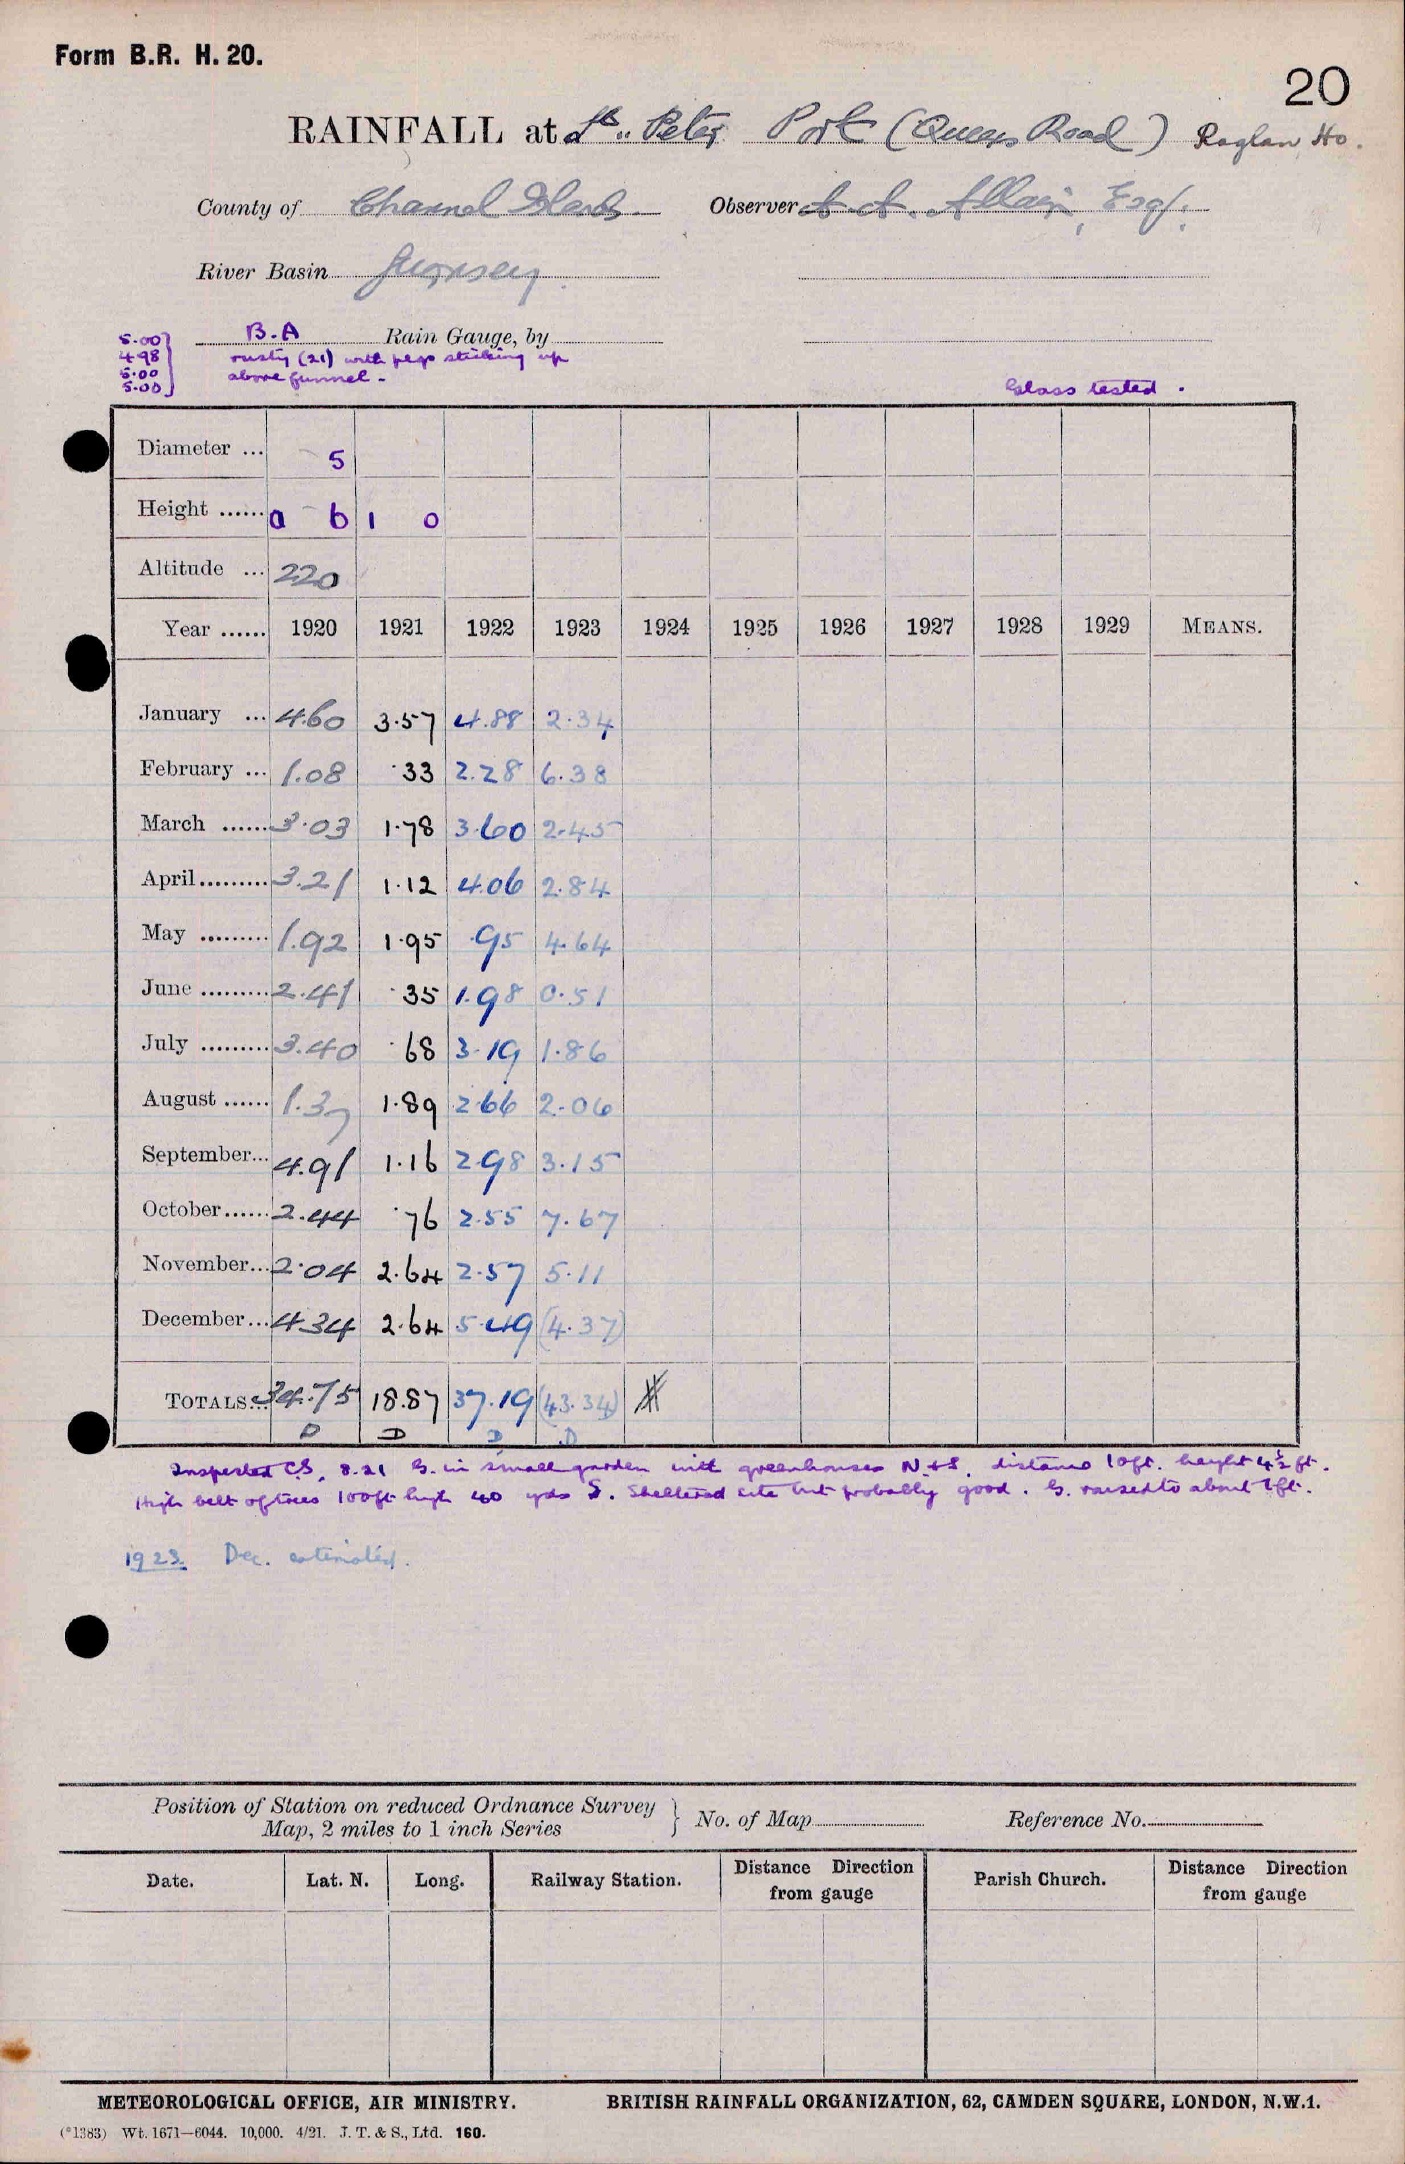 Form B.R. H. 20.
20
RAINFALL at St. Peter Port (Queens Road) Raglan Ho.
County of Channel Islands Observer A. A. Allain, Esq.
River Basin Guernsey.
B.A Rain Gauge, by
5.00
4.98
5.00
5.00
rusty (21) with pegs sticking up
above funnel.
Glass tested.
Diameter ... 5
Height ...... 0 6 1 0
Altitude ... 220
Year ...... 1920 1921 1922 1923 1924 1925 1926 1927 1928 1929 MEANS.
January ... 4.60 3.57 4.88 2.34
February ... 1.08 .33 2.28 6.38
March ...... 3.03 1.78 3.60 2.45
April ......... 3.21 1.12 4.06 2.84
May ......... 1.92 1.95 .95 4.64
June ......... 2.41 .35 1.98 0.51
July ......... 3.40 .68 3.19 1.86
August ...... 1.37 1.89 2.66 2.06
September... 4.91 1.16 2.98 3.15
October...... 2.44 .76 2.55 7.67
November... 2.04 2.64 2.57 5.11
December... 4.34 2.64 5.49 (4.37)
TOTALS... 34.75 18.87 37.19 (43.34)
D D D D
Inspected C.S. 8.21 G. in small garden with greenhouses N.+S. distance 10ft. height 4½ ft.
High belt of trees 100ft high 40 yds S. Sheltered site but probably good. G. raised to about 1ft.
1923. Dec. estimated.
Position of Station on reduced Ordnance Survey
Map, 2 miles to 1 inch Series } No. of Map Reference No.
Date. Lat. N. Long. Railway Station. Distance Direction
from gauge Parish Church. Distance Direction
from gauge
METEOROLOGICAL OFFICE, AIR MINISTRY. BRITISH RAINFALL ORGANIZATION, 62, CAMDEN SQUARE, LONDON, N.W.1.
(*1383) Wt. 1671—6044. 10,000. 4/21. J. T. & S., Ltd. 160.